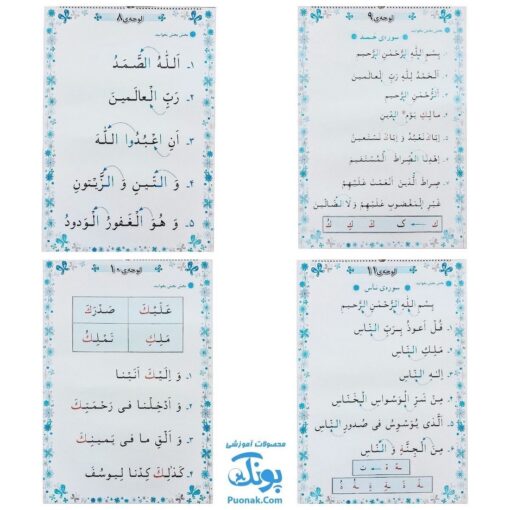 لوحه‌ی ۸
بخش بخش بخوانید
۱. اَللّٰهُ الصَّمَدُ
۲. رَبِّ الْعالَمینَ
۳. اَنِ اعْبُدُوا اللّٰهَ
۴. وَ التّینِ وَ الزَّیْتونِ
۵. وَ هُوَ الْغَفورُ الْوَدودُ
لوحه‌ی ۹
بخش بخش بخوانید
سوره‌ی حمد
بِسْمِ اللّٰهِ الرَّحْمٰنِ الرَّحیمِ
۱. اَلْحَمْدُ لِلّٰهِ رَبِّ الْعالَمینَ
۲. اَلرَّحْمٰنِ الرَّحیمِ
۳. مالِكِ یَوْمِ الدّینِ
۴. اِیّاكَ نَعْبُدُ وَ اِیّاكَ نَسْتَعینُ
۵. اِهْدِنَا الصِّراطَ الْمُسْتَقیمَ
۶. صِراطَ الَّذینَ اَنْعَمْتَ عَلَیْهِمْ
۷. غَیْرِ الْمَغْضوبِ عَلَیْهِمْ وَ لَا الضّالّینَ
ک ← ك كَ كِ كُ
لوحه‌ی ۱۰
بخش بخش بخوانید
عَلَیْكَ صَدْرَكَ
مَلِكِ نَمْلِكُ
۱. وَ اِلَیْكَ اَنَبْنا
۲. وَ اَدْخِلْنا فی رَحْمَتِكَ
۳. وَ اَلْقِ ما فی یَمینِكَ
۴. كَذٰلِكَ كِدْنا لِیوسُفَ
لوحه‌ی ۱۱
بخش بخش بخوانید
سوره‌ی ناس
بِسْمِ اللّٰهِ الرَّحْمٰنِ الرَّحیمِ
۱. قُلْ اَعوذُ بِرَبِّ النّاسِ
۲. مَلِكِ النّاسِ
۳. اِلٰهِ النّاسِ
۴. مِنْ شَرِّ الْوَسْواسِ الْخَنّاسِ
۵. اَلَّذی یُوَسْوِسُ فی صُدورِ النّاسِ
۶. مِنَ الْجِنَّةِ وَ النّاسِ
محصولات آموزشی
پونک
Puonak.Com